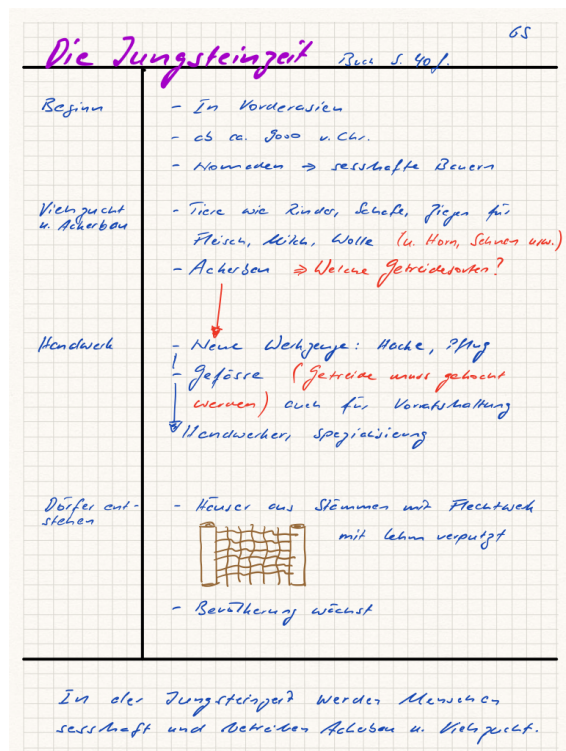 GS
Die Jungsteinzeit Buch S. 40f.
Beginn - In Vorderasien
- ab ca. 9000 v. Chr.
- Nomaden ⇒ sesshafte Bauern
Viehzucht - Tiere wie Rinder, Schafe, Ziegen für
u. Ackerbau Fleisch, Milch, Wolle (u. Horn, Sehnen usw.)
- Ackerbau ⇒ Welche Getreidesorten?
Handwerk - Neue Werkzeuge: Hacke, Pflug
- Gefässe (Getreide muss gekocht
werden) auch für Vorratshaltung
Handwerker, Spezialisierung
Dörfer ent- - Häuser aus Stämmen mit Flechtwerk
stehen mit Lehm verputzt
- Bevölkerung wächst
In der Jungsteinzeit werden Menschen
sesshaft und betreiben Ackerbau u. Viehzucht.